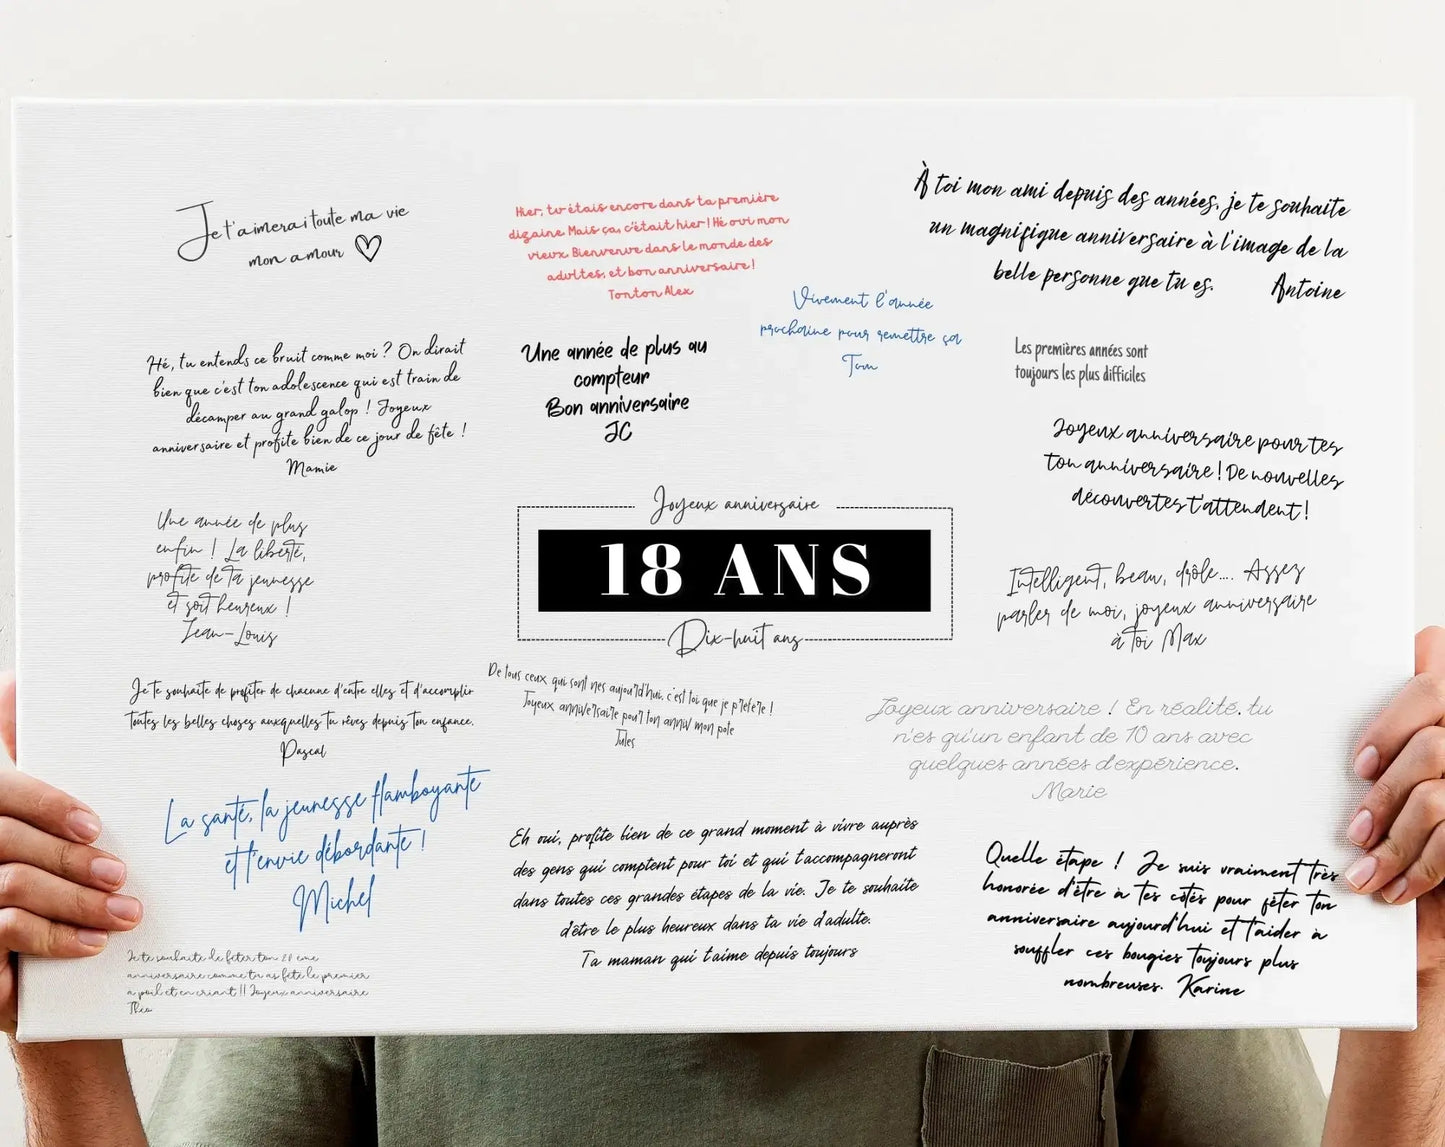 Je t'aimerai toute ma vie
mon amour
Hier, tu étais encore dans ta première
dizaine. Mais ça, c'était hier ! Hé oui mon
vieux. Bienvenue dans le monde des
adultes, et bon anniversaire !
Tonton Alex
À toi mon ami depuis des années, je te souhaite
un magnifique anniversaire à l'image de la
belle personne que tu es. Antoine
Vivement l'année
prochaine pour remettre ça
Tom
Hé, tu entends ce bruit comme moi ? On dirait
bien que c'est ton adolescence qui est train de
décamper au grand galop ! Joyeux
anniversaire et profite bien de ce jour de fête !
Mamie
Une année de plus au
compteur
Bon anniversaire
JC
Les premières années sont
toujours les plus difficiles
Joyeux anniversaire pour tes
ton anniversaire ! De nouvelles
découvertes t'attendent !
Une année de plus
enfin ! La liberté,
profite de ta jeunesse
et soit heureux !
Jean-Louis
Joyeux anniversaire
18 ANS
Dix-huit ans
Intelligent, beau, drôle.... Assez
parler de moi, joyeux anniversaire
à toi Max
Je te souhaite de profiter de chacune d'entre elles et d'accomplir
toutes les belles choses auxquelles tu rêves depuis ton enfance.
Pascal
De tous ceux qui sont nes aujourd'hui, c'est toi que je préfère !
Joyeux anniversaire pour ton anniv mon pote
Jules
Joyeux anniversaire ! En réalité, tu
n'es qu'un enfant de 10 ans avec
quelques années d'expérience.
Marie
La santé, la jeunesse flamboyante
et l'envie débordante !
Michel
Eh oui, profite bien de ce grand moment à vivre auprès
des gens qui comptent pour toi et qui t'accompagneront
dans toutes ces grandes étapes de la vie. Je te souhaite
d'être le plus heureux dans ta vie d'adulte.
Ta maman qui t'aime depuis toujours
Quelle étape ! Je suis vraiment très
honorée d'être à tes côtés pour fêter ton
anniversaire aujourd'hui et t'aider à
souffler ces bougies toujours plus
nombreuses. Karine
Je te souhaite de fêter ton ème
anniversaire comme tu as fêté le premier
a poil et en criant !! Joyeux anniversaire
Théo